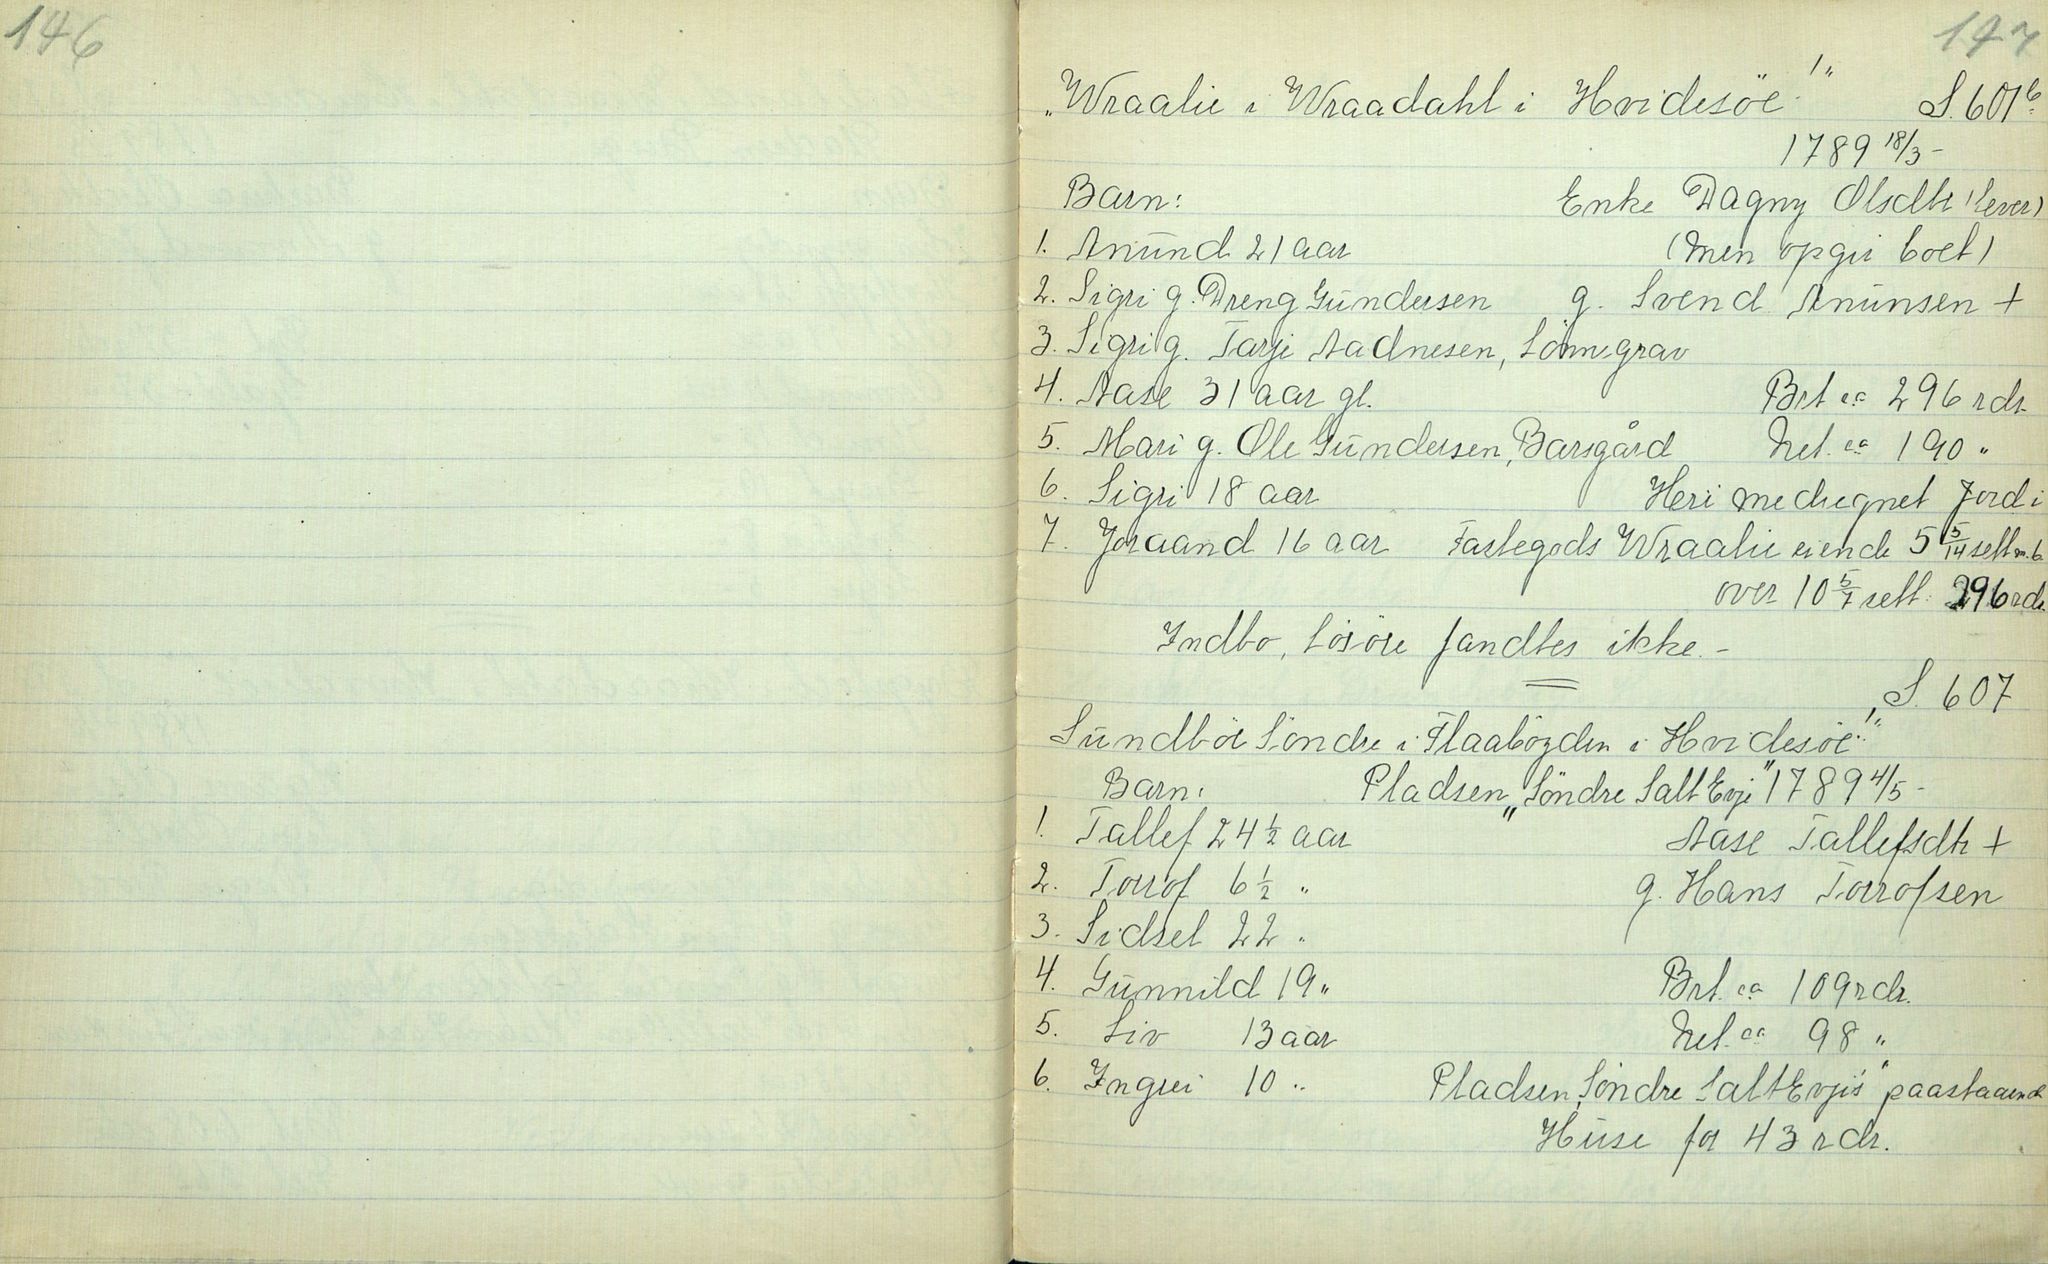 146
147
„Wraalie i Wraadahl i Hvidesöe!" S. 601b.
1789 18/3 -
Barn: Enke Dagny Olsdtr (lever)
1. Anund 21 aar (men opgir boet)
2. Sigri g. Dreng Gundersen g. Svend Anunsen +
3. Sigri g. Tarje Aadnesen, Lönnegrav
4. Aase 31 aar gl. Brt ca 296 rdr.
5. Mari g. Ole Gundersen, Barsgård Net. ca 190 "
6. Sigri 18 aar Heri medregnet Jord i
7. Joraand 16 aar Fastegods Wraalie eiende 5 5/14 sett m.b.
over 10 5/7 sett. 296 rdr
Indbo, Lösöre fandtes ikke. -
S. 607
Sundböe Söndre i Flaabögden i Hvidesöe!"
Barn: Pladsen „Söndre Salt Evje" 1789 4/5 -
1. Tallef 24 1/2 aar Aase Tallefsdtr +
2. Torrof 6 1/2 " g. Hans Torrofsen
3. Sidsel 22 "
4. Gunnild 19 " Brt. ca 109 rdr.
5. Liv 13 aar Net. ca 98 "
6. Ingrei 10 " Pladsen „Söndre Salt Evjis" paastaaende
Huse for 43 rdr.